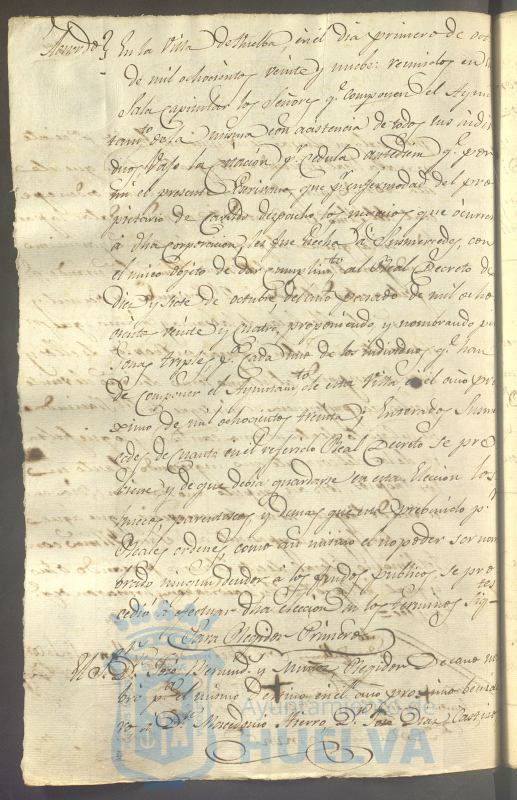 Acuerdo} En la Villa de Huelba, en el dia primero de oct.
de mil ochocientos veinte y nuebe: reunidos en la
Sala capitular los Señores q.e componen el Ayun
tam.to de la misma con asistencia de todos sus indivi
duos bajo la citacion p.r cedula antediem q.e per
mi el presente Escribano, que p.r enfermedad del pro
pietario de Cavildo despacho los negocios que ocurren
á dha Corporacion, les fue hecha á Sus mercedes, con
el unico objeto de dar cumplim.to al Real Decreto de
Diez y Siete de octubre, del año pasado de mil ocho
cientos veinte y cuatro, proponiendo, y nombrando per
sonas triples p.a cada uno de los individuos q.e han
de componer el Ayuntam.to de esta Villa en el año pro
ximo de mil ochocientos treinta; y Enterados Sus mer
cedes de cuanto en el referido Real Decreto se pre
biene y de que debia guardarse en esta Eleccion los
huecos, parentescos, y demas que está prebenido p.r
Reales ordenes, como asi mismo el no poder ser nom
brado ningun deudor á los fondos publicos, se pro
cedió á efectuar dha Eleccion en los terminos sig.tes
Para Regidor Primero
El S.r D.n José Bermud.z y Muñoz Regidor Decano nom
bro p.a el mismo Destino en el año proximo benide
ro á D.n Macedonio D.n José Diaz Castizo
Ayuntamiento de
HUELVA